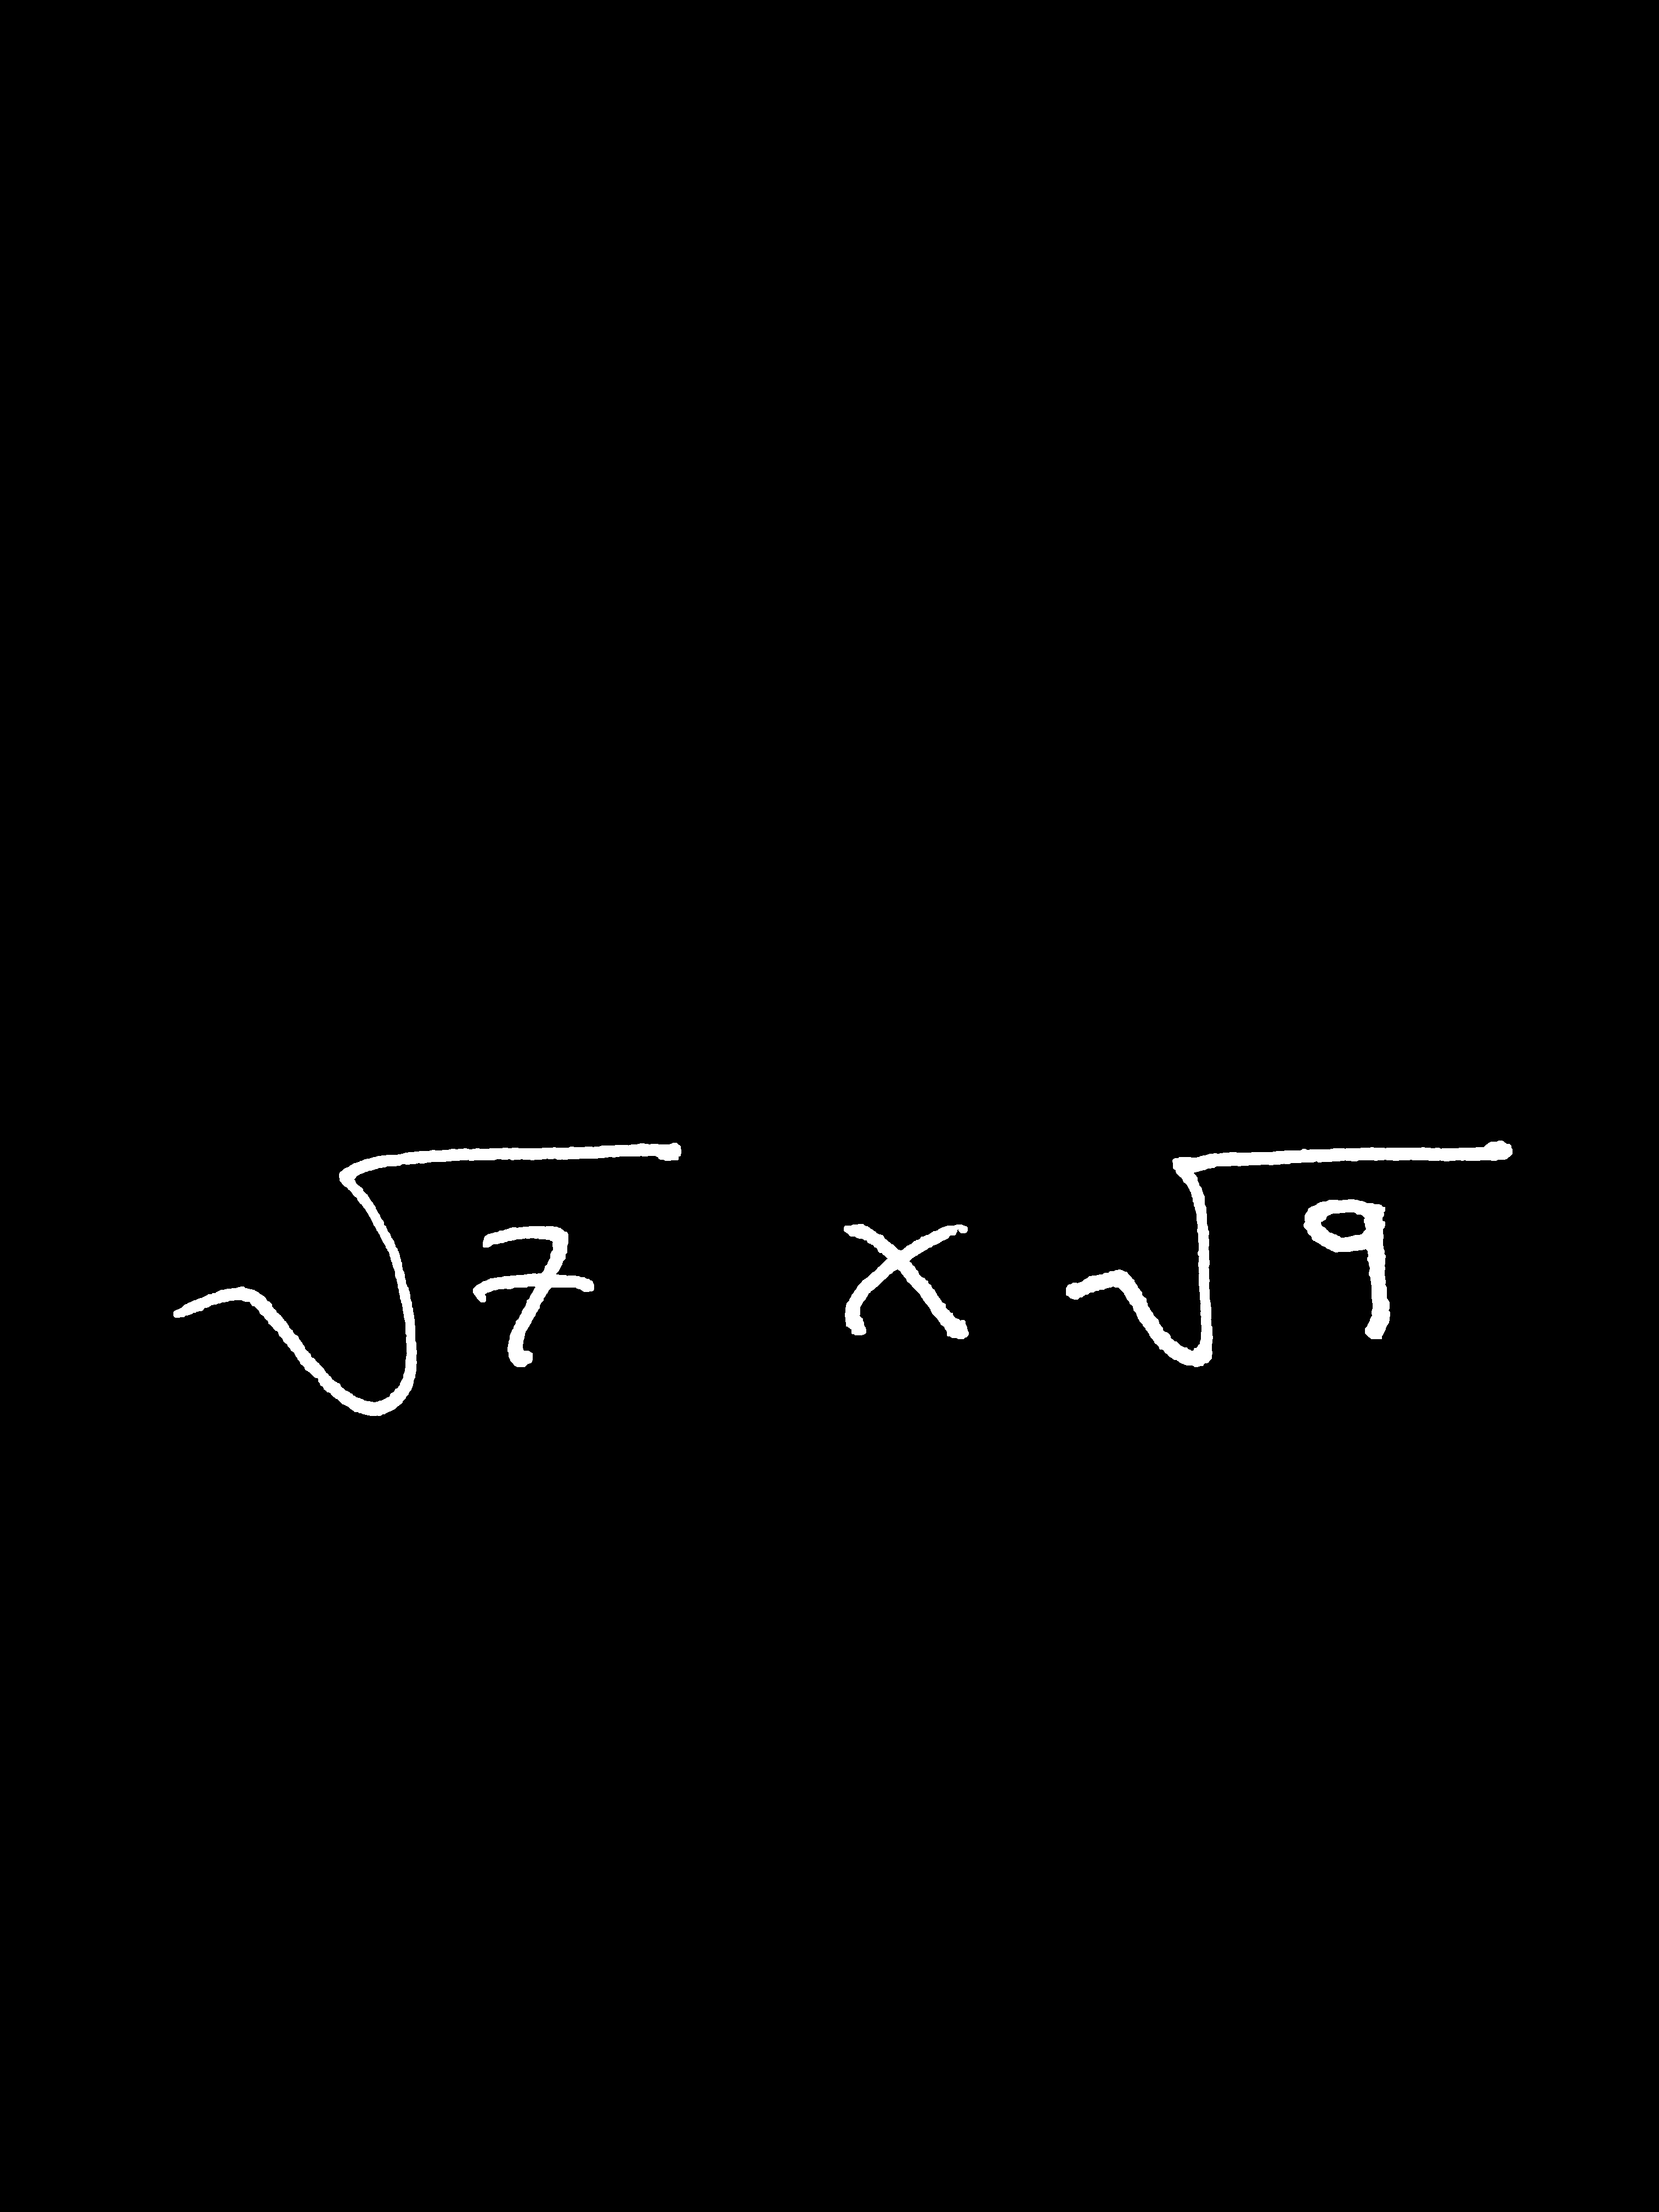 √7 × √9